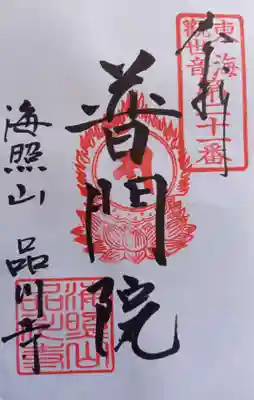 奉拝
東海三十一番
観世音
普門院
海照山 品川寺
海照山
品川寺